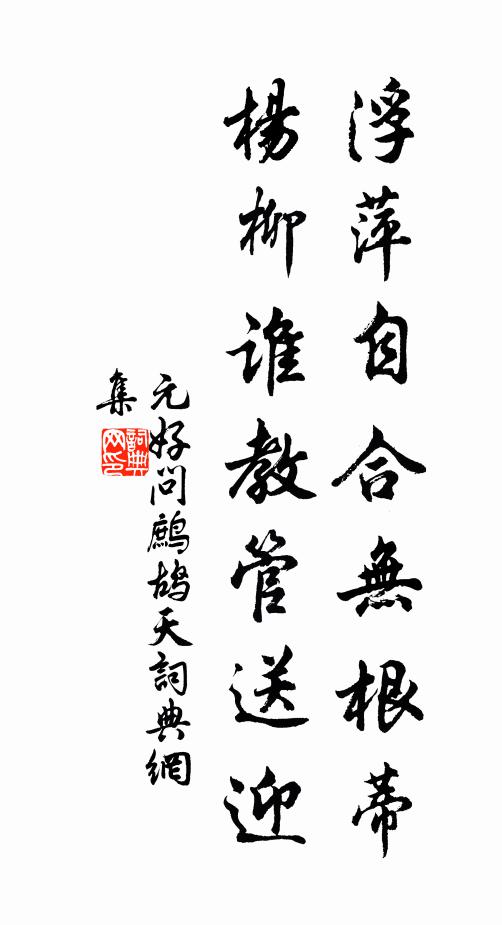 浮萍自合無根蒂
楊柳誰教管送迎
元好問鷓鴣天詞典網
集
詞典網印